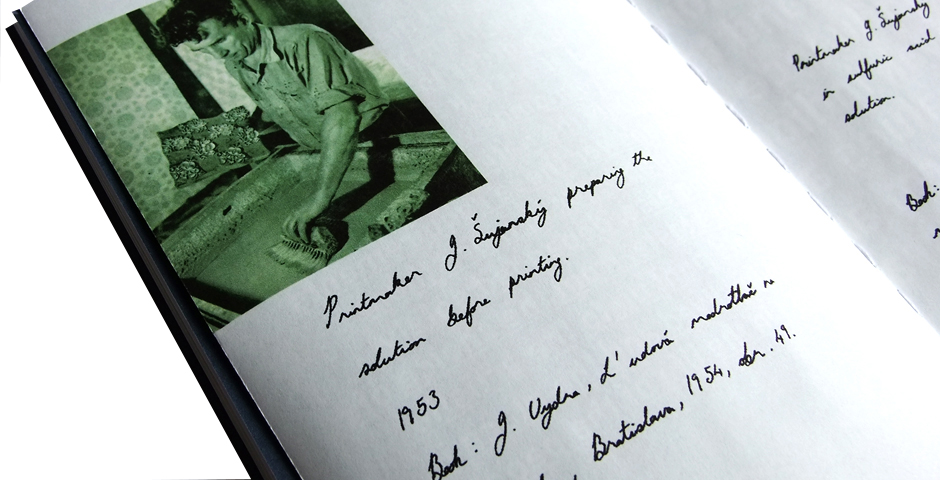 Printmaker J. Šujanský preparing the
solution before printing.
1953
Book: J. Vydra, Ľudová modrotlač n
Bratislava, 1954, obr. 49.
Printmaker J. Šujanský
in sulfuric acid
solution.
Book: